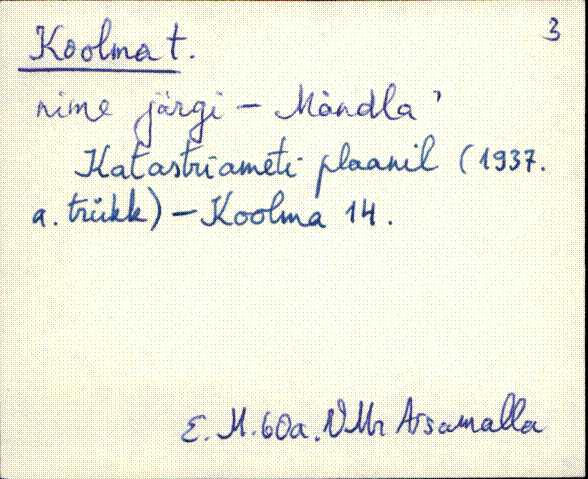 3
Koolma t.
nime järgi – Mändla'
Katastriameti plaanil (1937.
a. trükk) – Koolma 14.
E. M. 60a. VMr Assamalla